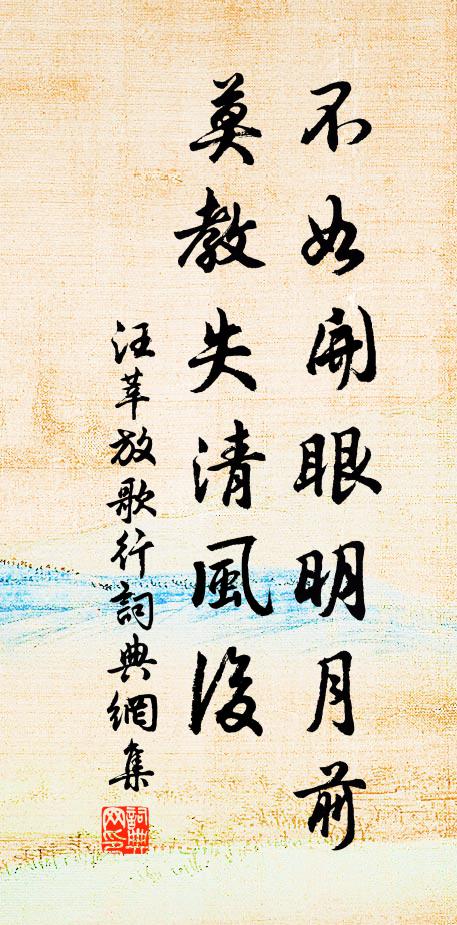 不如開眼明月前
莫教失清風後
汪莘放歌行詞典網集
詞典網印